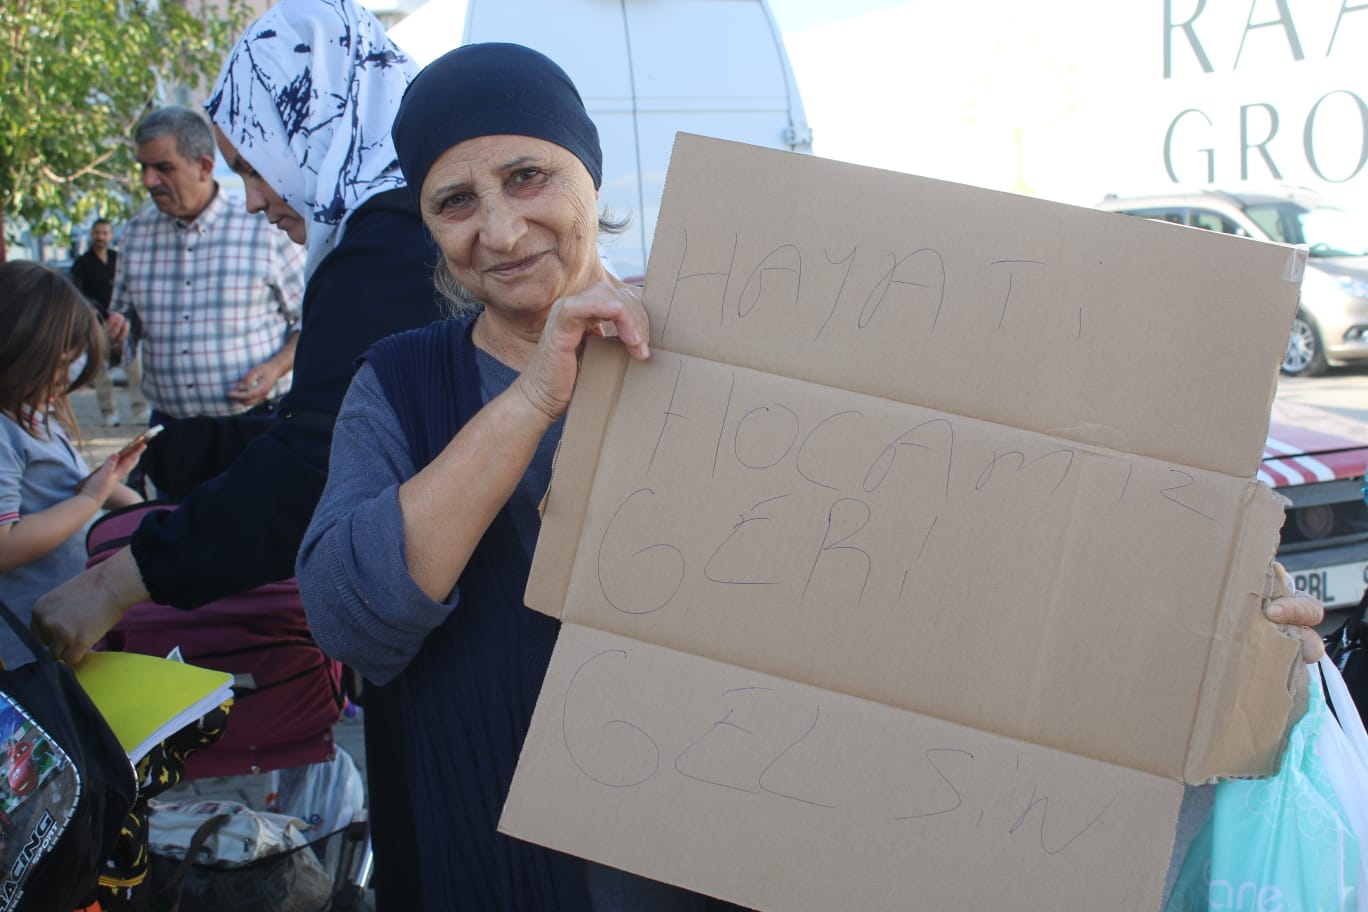 RAA
GRO
HAYATİ
HOCAMIZ
GERİ
GEL SİN
RACING
SPORT
BBL